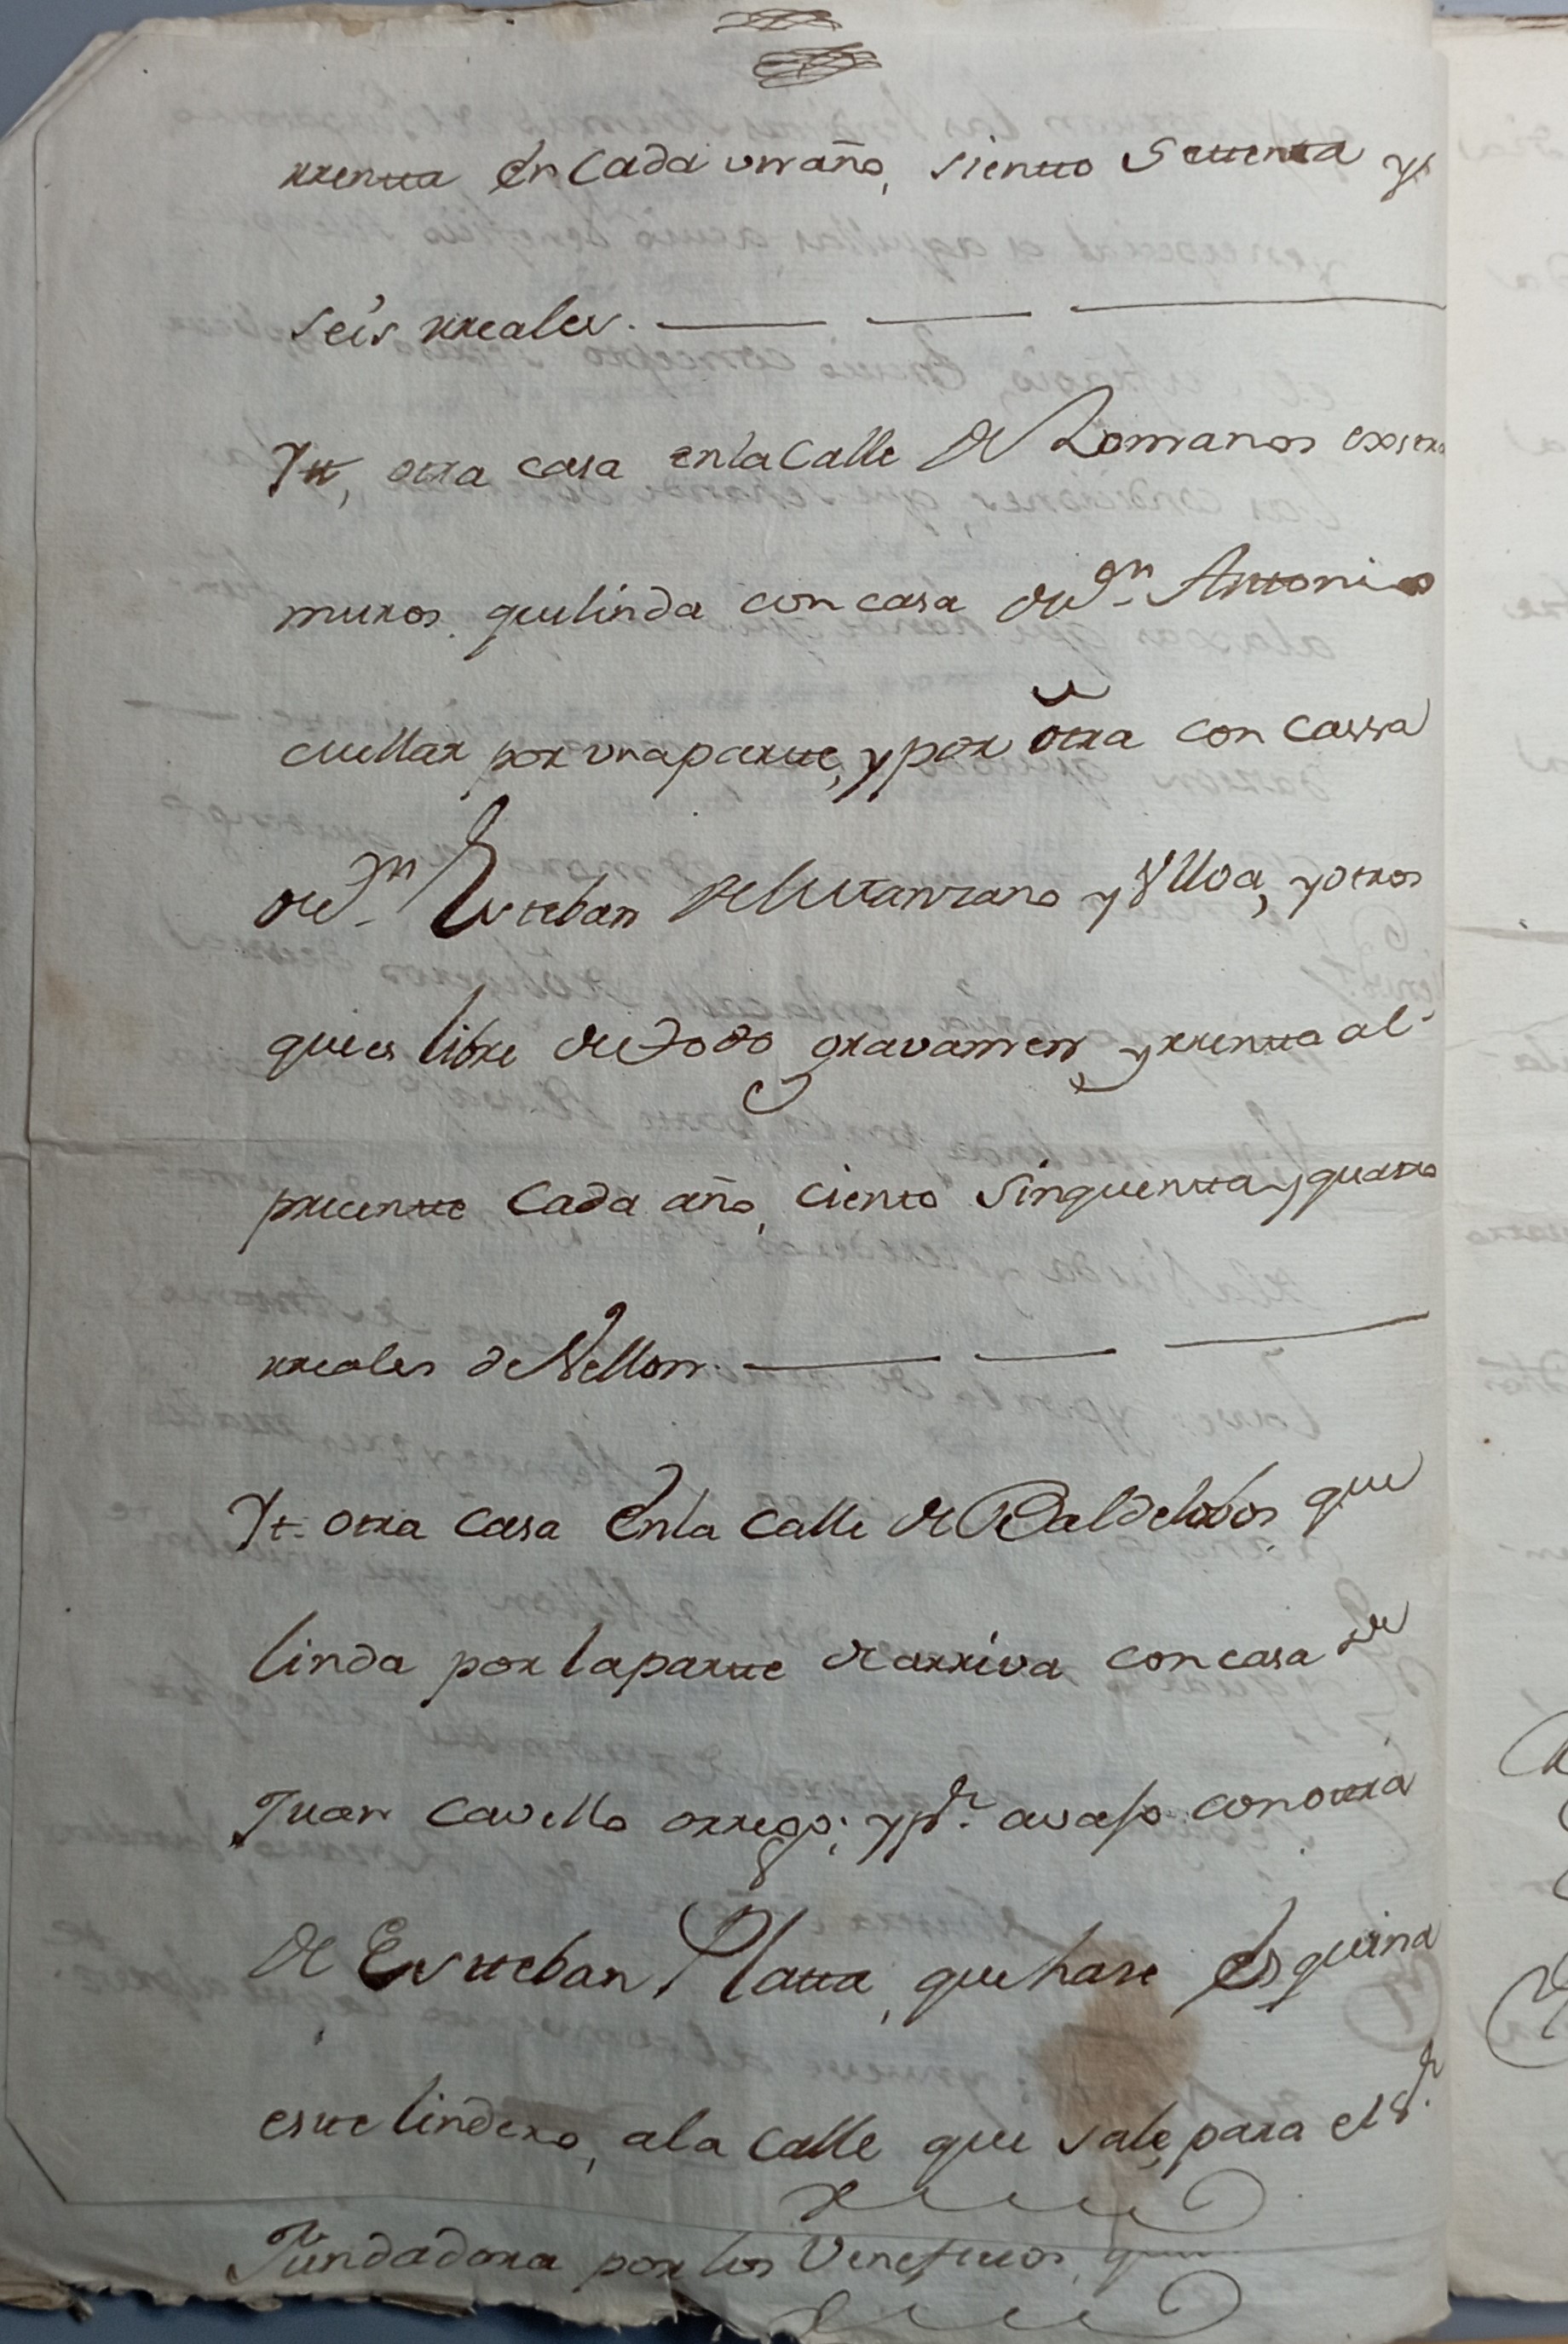 rrentta en Cada un año, sientto Settentta y
seis rreales.
Ytt, otra casa en la Calle de Romanos exstra
muros, que linda con casa de Dn. Anttonio
cuellar por una partte, y por otra con cassa
de Dn. Esteban de Manzano y Ulloa, y otros
que es libre de todo gravamen, y rrentta al
precentte Cada año, ciento Sinquentta y quatro
rreales de Vellon.
Yt. otra Casa en la Calle de Baldelobos, que
linda por la partte de arriva con casa de
Juan Cavello orrego; y pr. avajo con otra
de Estteban Platta, que hase esquina
estte lindero, a la Calle que sale para el
Fundadora por los Veneficios, que